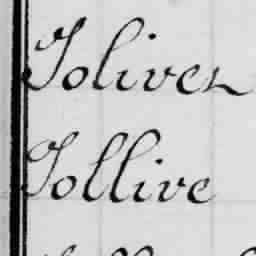 Joliver
Jollive